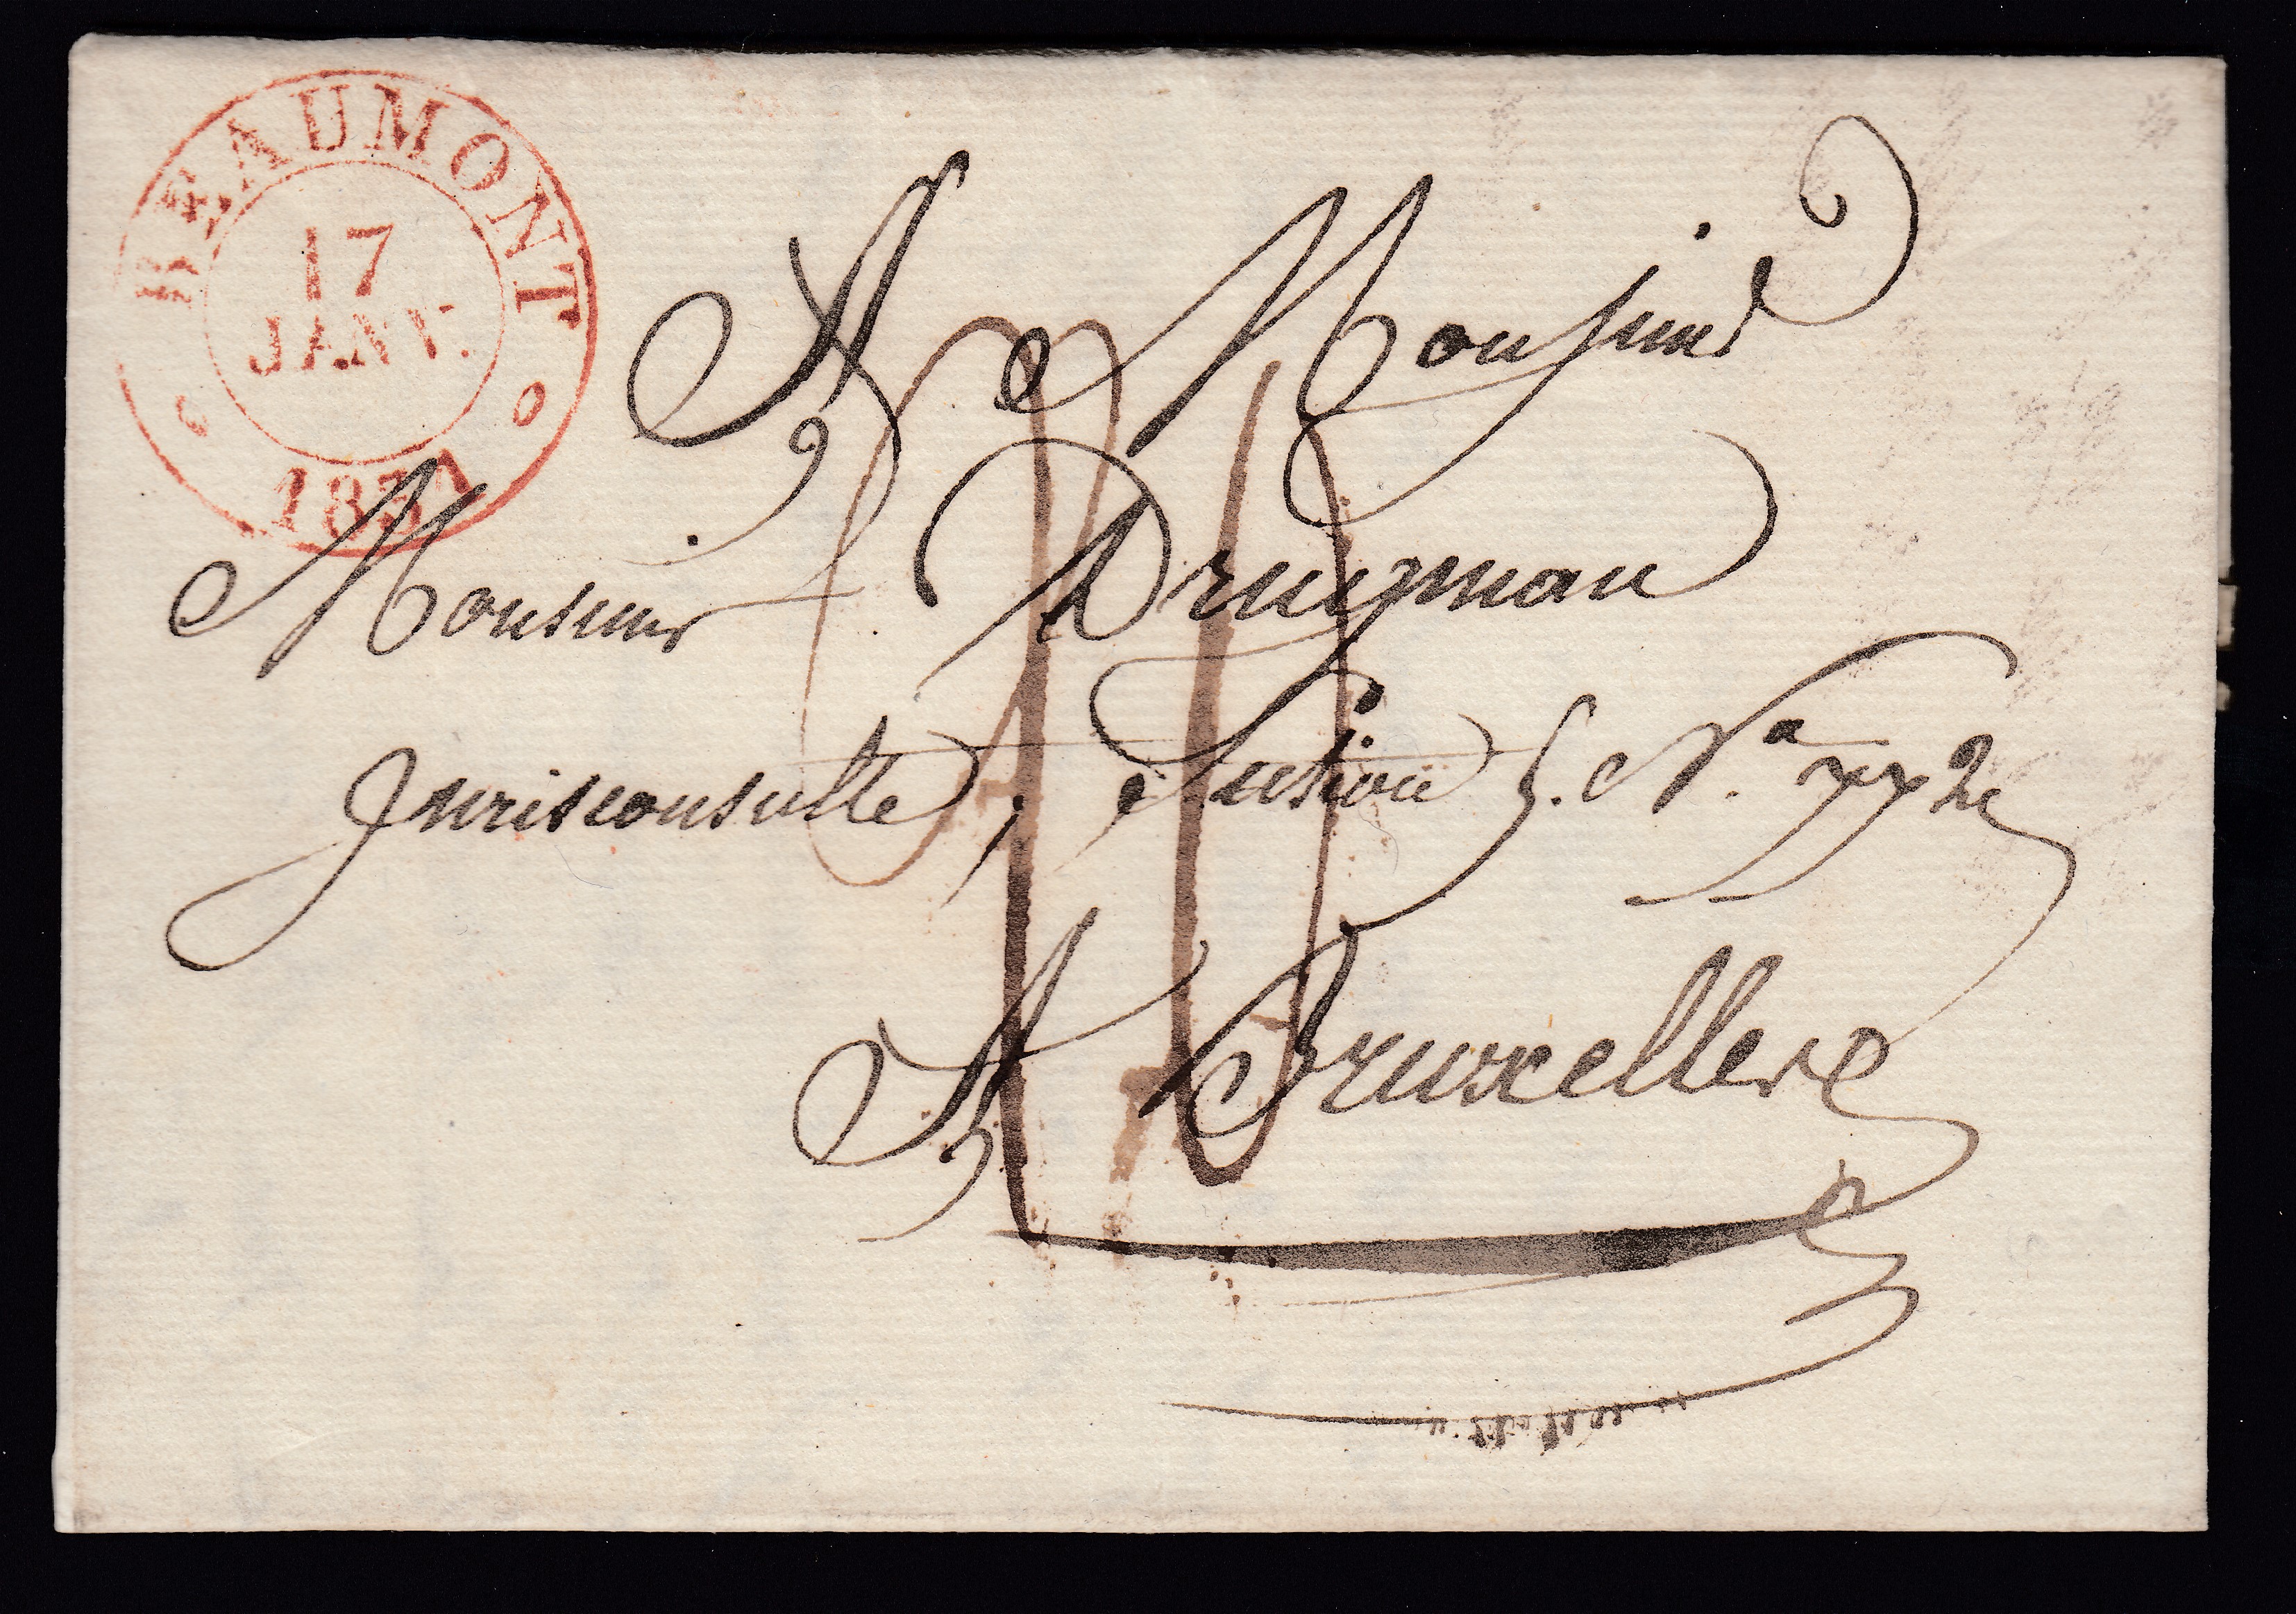 BEAUMONT
17
JANV.
183
A Monsieur
Monsieur Drugman
Jurisconsulte, Section 5. N.a 772
A Bruxelles